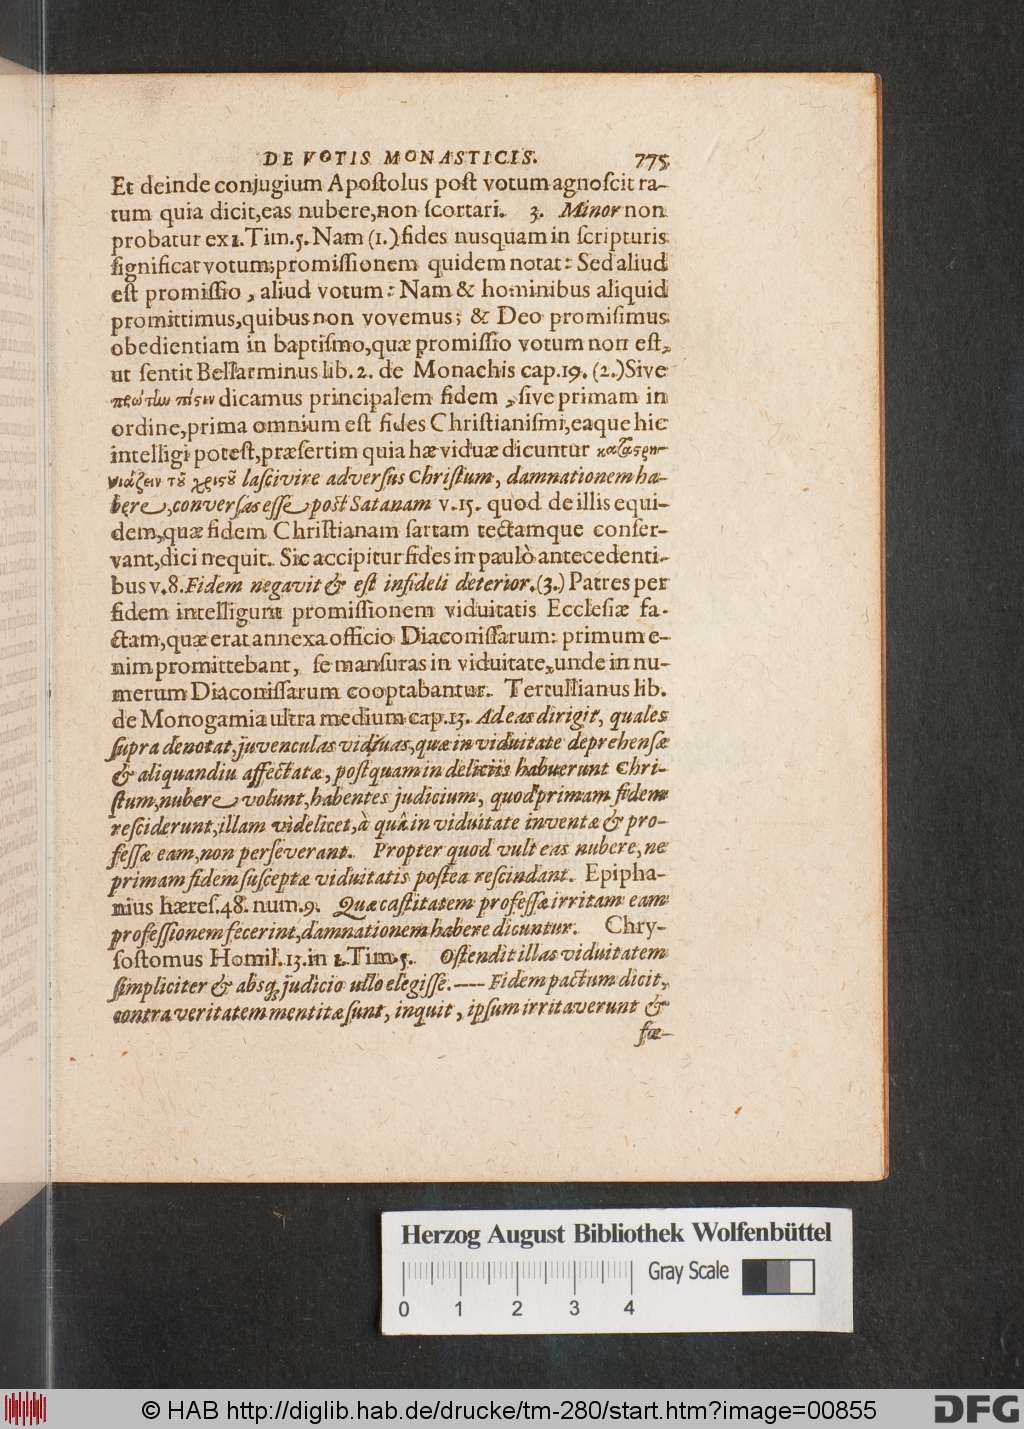 DE VOTIS MONASTICIS. 775
Et deinde conjugium Apoſtolus poſt votum agnoſcit ra-
tum quia dicit, eas nubere, non ſcortari. 3. Minor non
probatur ex 1. Tim. 5. Nam (1.) fides nusquam in ſcripturis
ſignificat votum; promiſſionem quidem notat: Sed aliud
eſt promiſſio, aliud votum: Nam & hominibus aliquid
promittimus, quibus non vovemus; & Deo promiſimus
obedientiam in baptiſmo, quæ promiſſio votum non eſt,
ut ſentit Bellarminus lib. 2. de Monachis cap. 19. (2.) Sive
πρώτην πίστιν dicamus principalem fidem, ſive primam in
ordine, prima omnium eſt fides Chriſtianiſmi, eaque hic
intelligi poteſt, præſertim quia hæ viduæ dicuntur καταστρη-
νιάζειν τοῦ χριστοῦ laſcivire adverſus Chriſtum, damnationem ha-
bere, converſas eſſe poſt Satanam v. 15. quod de illis equi-
dem, quæ fidem Chriſtianam ſartam tectamque conſer-
vant, dici nequit. Sic accipitur fides in paulò antecedenti-
bus v. 8. Fidem negavit & eſt infideli deterior. (3.) Patres per
fidem intelligunt promiſſionem viduitatis Eccleſiæ fa-
ctam, quæ erat annexa officio Diaconiſſarum: primum e-
nim promittebant, ſe manſuras in viduitate, unde in nu-
merum Diaconiſſarum cooptabantur. Tertullianus lib.
de Monogamia ultra medium cap. 13. Ad eas dirigit, quales
ſupra denotat, juvenculas viduas, quæ in viduitate deprehenſæ
& aliquandiu affectatæ, poſtquam in deliciis habuerunt Chri-
ſtum, nubere volunt, habentes judicium, quod primam fidem
reſciderunt, illam videlicet, à quâ in viduitate inventæ & pro-
feſſæ eam, non perſeverant. Propter quod vult eas nubere, ne
primam fidem ſuſceptæ viduitatis poſtea reſcindant. Epipha-
nius hæreſ. 48. num. 9. Quæ caſtitatem profeſſæ irritam eam
profeſſionem fecerint, damnationem habere dicuntur. Chry-
ſoſtomus Homil. 13. in 1. Tim. 5. Oſtendit illas viduitatem
ſimpliciter & absq; judicio ullo elegiſſe. ---- Fidem pactum dicit,
contra veritatem mentitæ ſunt, inquit, ipſum irritaverunt &
fœ-
Herzog August Bibliothek Wolfenbüttel
Gray Scale
0 1 2 3 4
© HAB http://diglib.hab.de/drucke/tm-280/start.htm?image=00855
DFG